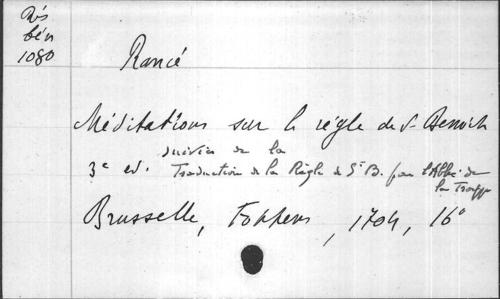 Rés
bén
1080
Rancé
Méditations sur la règle de S. Benoit
suivies de la
3e ed. Traduction de la Règle de St B. par l'Abbé de
la Trappe
Bruxelle, Foppens, 1704, 16°